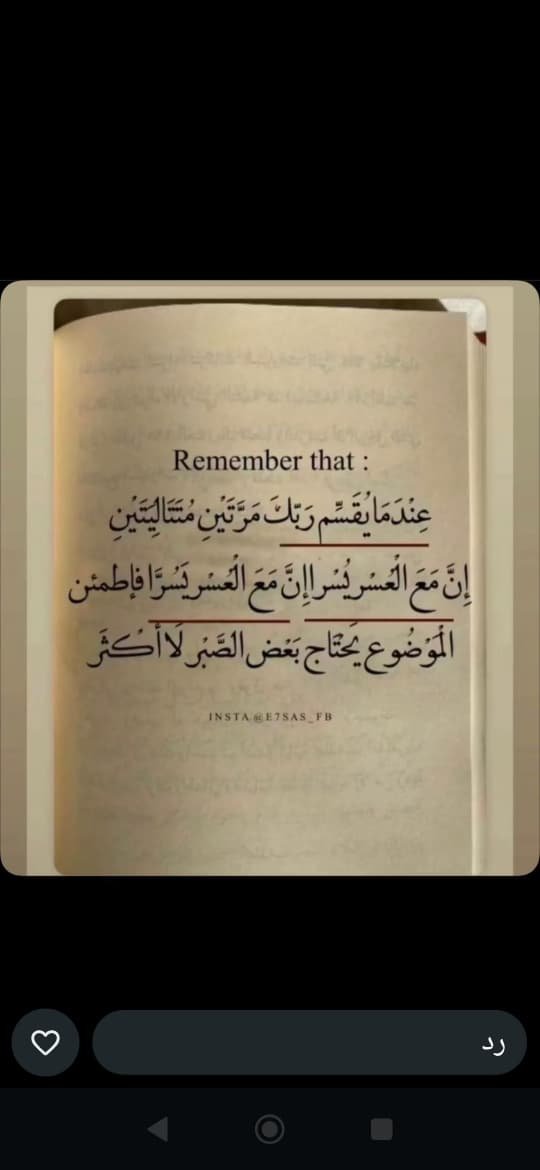 Remember that :
عِنْدَمَا يُقَسِّم رَبّكَ مَرَّتَيْنِ مُتَتَالِيَتَيْنِ
إِنَّ مَعَ الْعُسْرِ يُسْرا إِنَّ مَعَ الْعُسْرِ يَسُرَّا فإطمئن
الْمَوْضُوع يَحْتَاج بَعْض الصَّبْر لَا أَكْثَر
INSTA @E7SAS_FB
رد